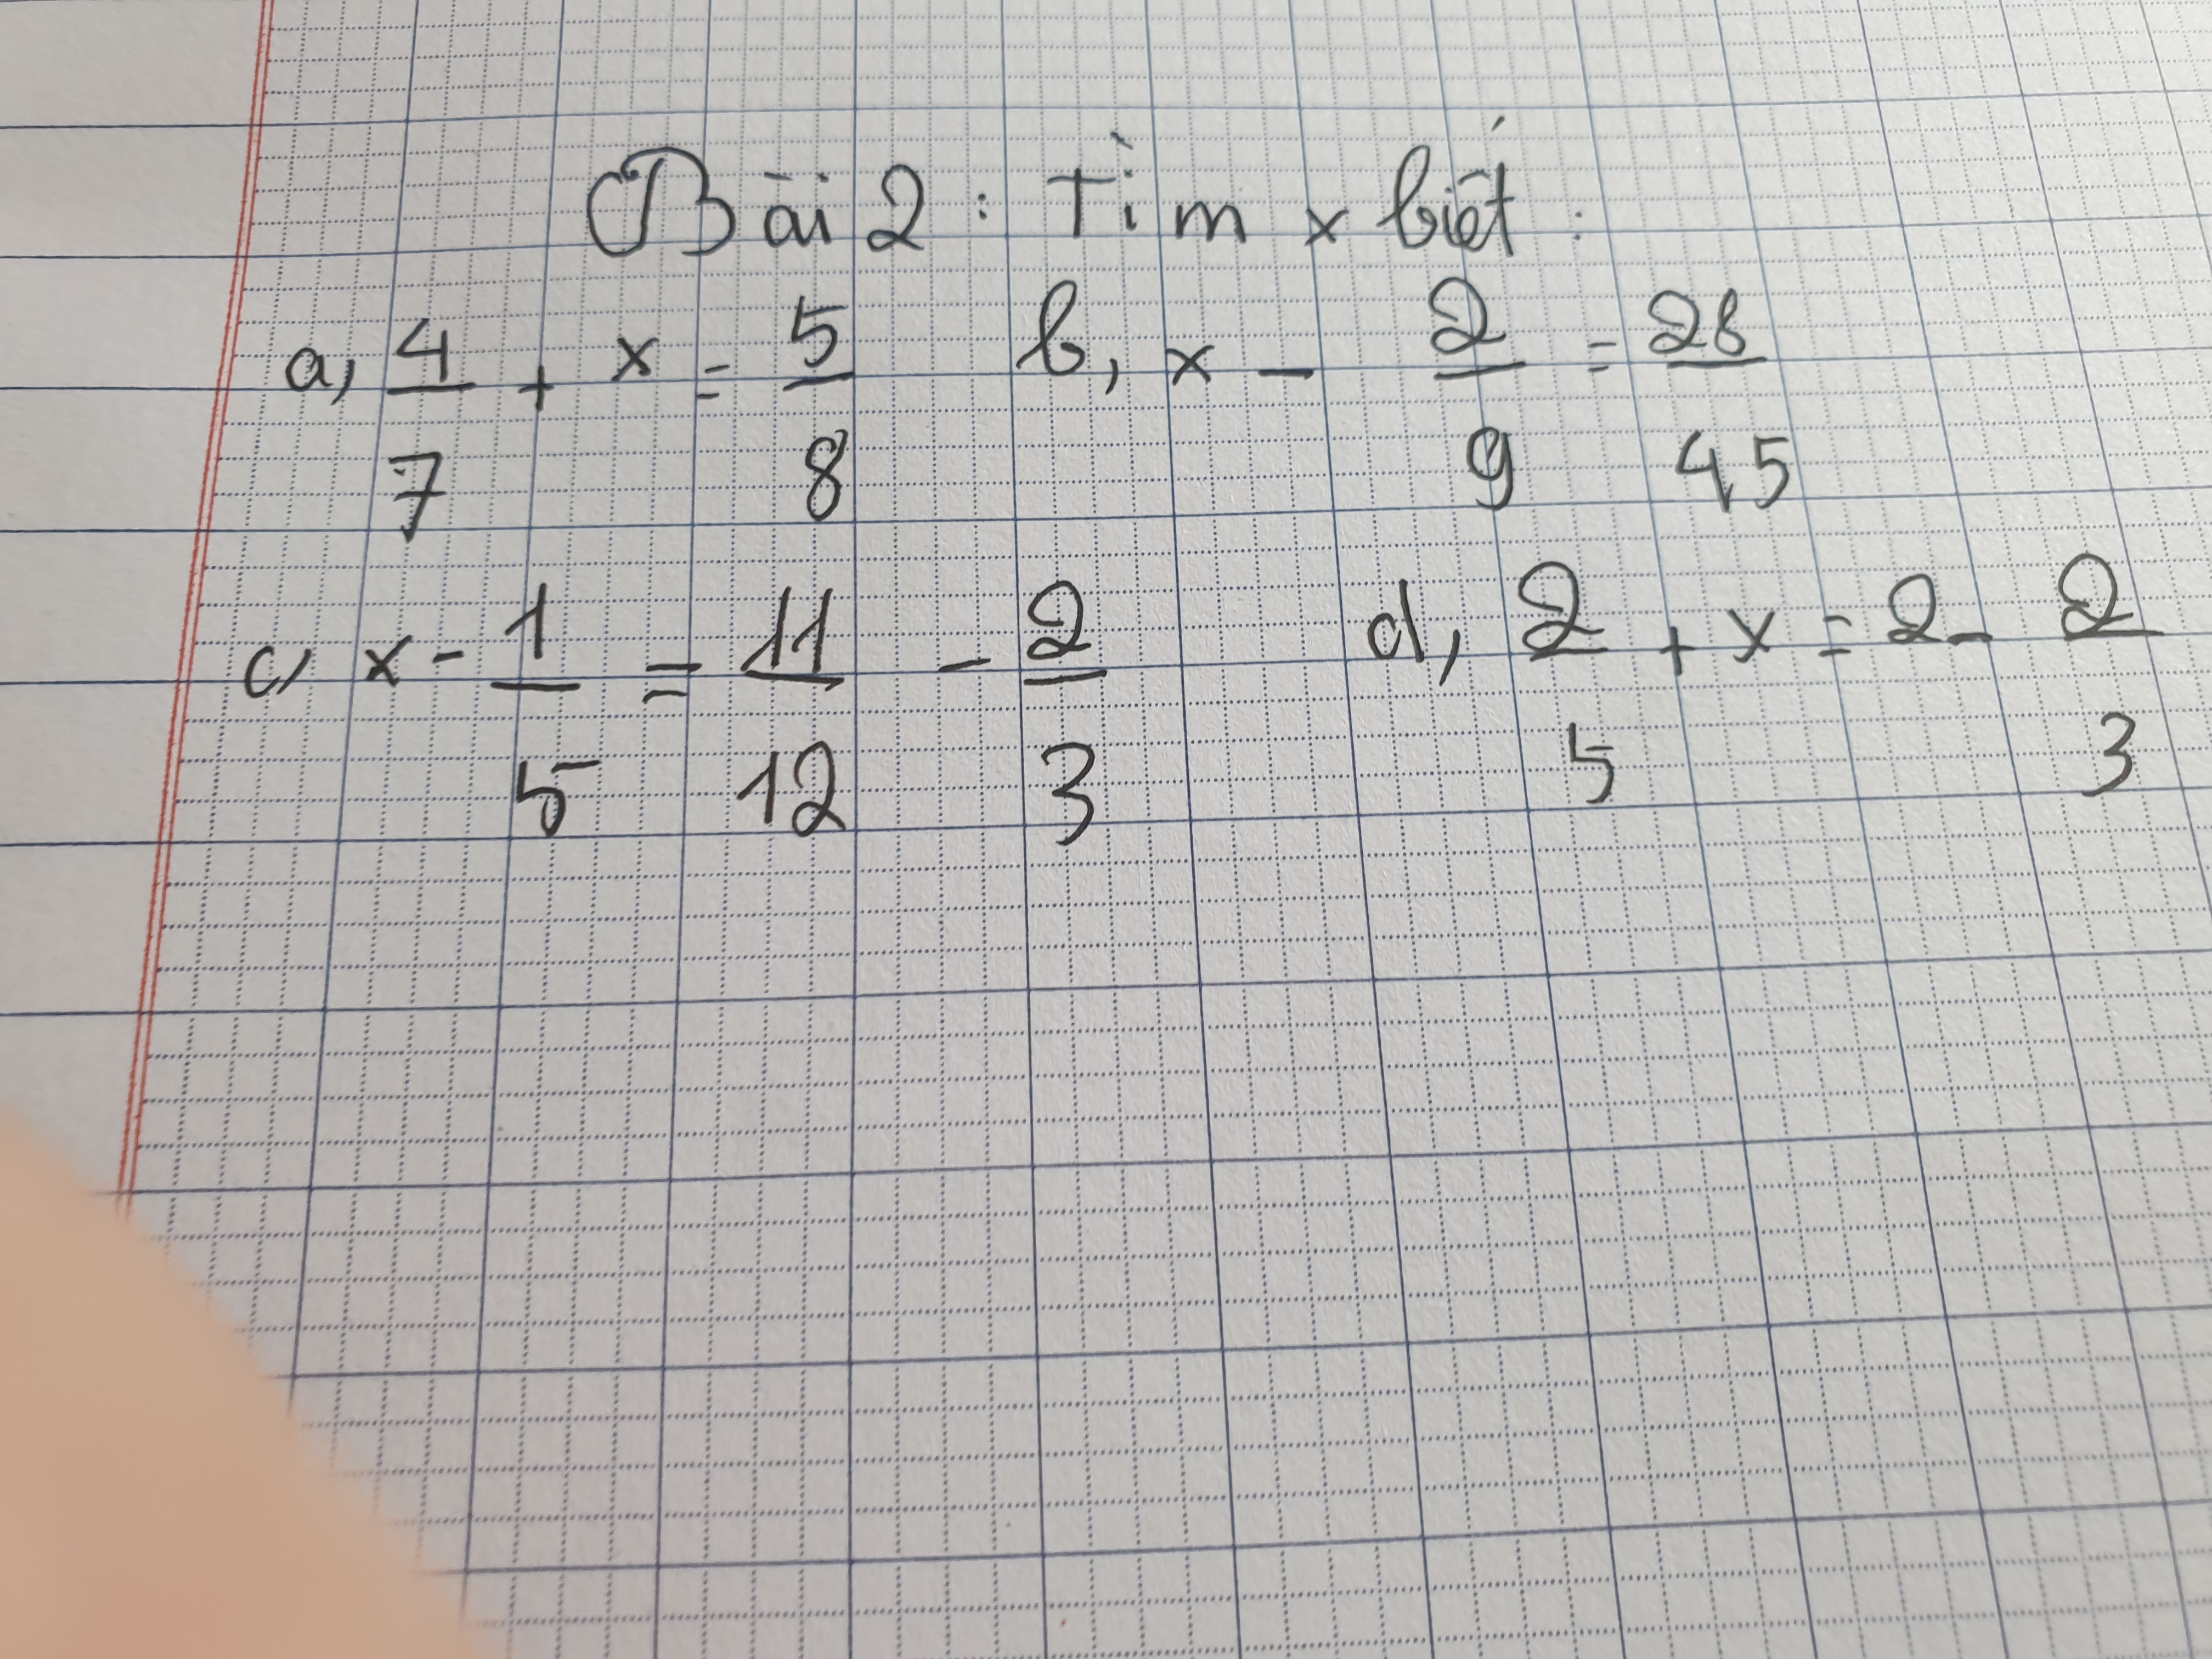 Bài 2: Tìm x biết:
a, 4/7 + x = 5/8 b, x - 2/9 = 28/45
c, x - 1/5 = 11/12 - 2/3 d, 2/5 + x = 2 - 2/3